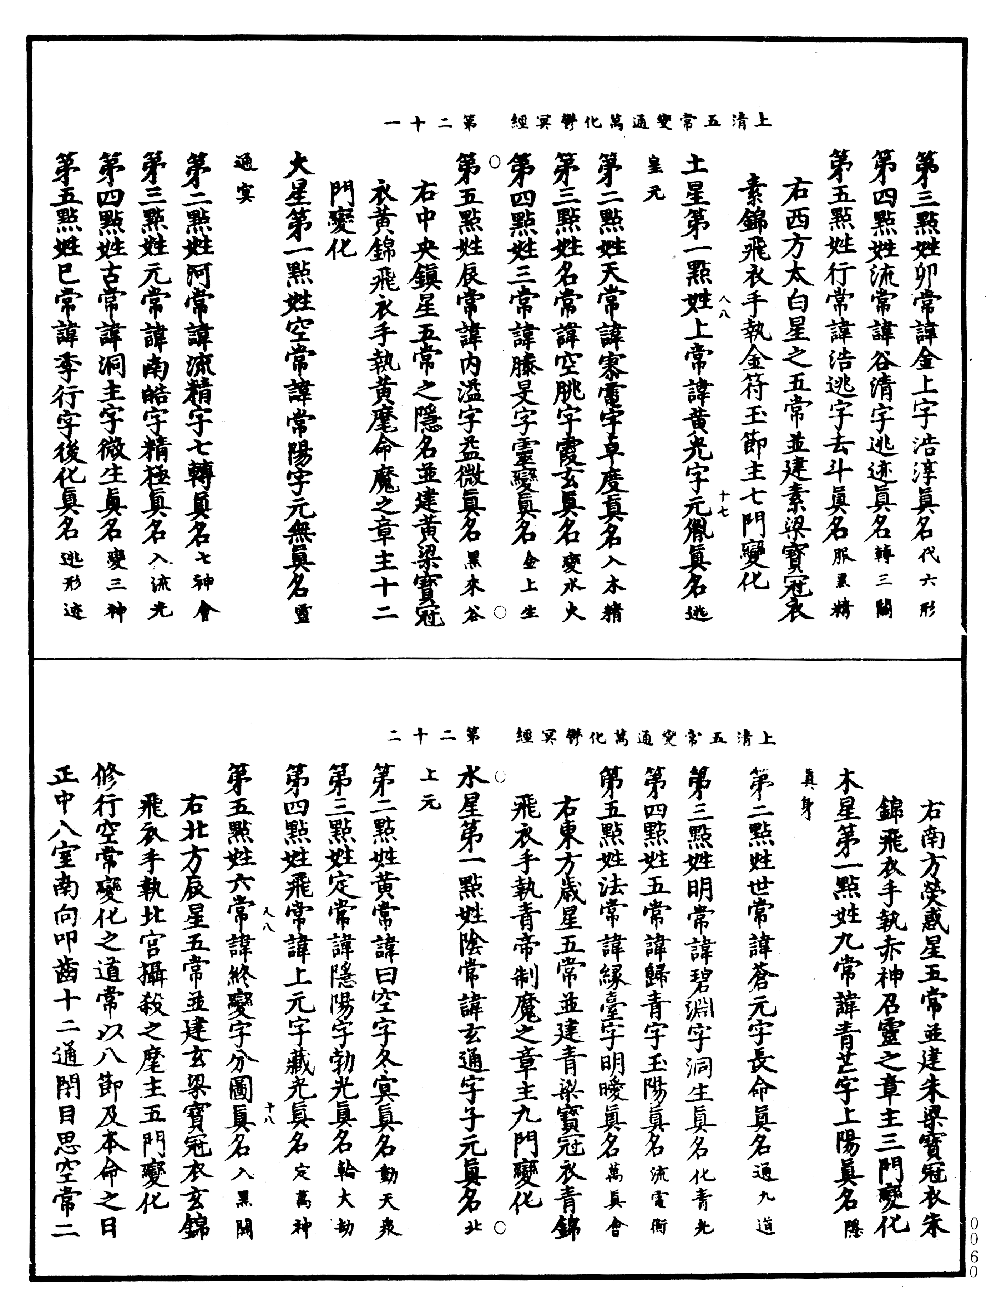 上清五常變通萬化鬱冥經　第二十一
第三點姓卯常諱金上字浩淳眞名代六形
第四點姓流常諱谷清字逃迹眞名轉三關
第五點姓行常諱浩逃字去斗眞名服黑精
右西方太白星之五常並建素梁寶冠衣
素錦飛衣手執金符玉節主七門變化
土星第一點姓上常諱黄光字元𠎣眞名逃
皇元
第二點姓天常諱寨電字卓度眞名入木精
第三點姓名常諱空朓字霞玄眞名變水火
第四點姓三常諱滕旻字靈變眞名金上生
第五點姓辰常諱内溢字益微眞名黑來谷
右中央鎭星五常之隱名並建黄梁寶冠
衣黄錦飛衣手執黄麾命魔之章主十二
門變化
火星第一點姓空常諱常陽字元無眞名靈
通寞
第二點姓阿常諱流精字七轉眞名七神會
第三點姓元常諱南皓字精極眞名入流光
第四點姓古常諱洞主字微生眞名變三神
第五點姓巳常諱季行字後化眞名逃形迹
八八
十七
上清五常變通萬化鬱冥經　第二十二
右南方熒惑星五常並建朱梁寶冠衣朱
錦飛衣手執赤神召靈之章主三門變化
木星第一點姓九常諱青芒字上陽眞名隱
眞身
第二點姓世常諱蒼元字長命眞名通九道
第三點姓明常諱碧淵字洞生眞名化青光
第四點姓五常諱歸青字玉陽眞名流電衝
第五點姓法常諱縁臺字明曖眞名萬眞會
右東方歲星五常並建青梁寶冠衣青錦
飛衣手執青帝制魔之章主九門變化
水星第一點姓陰常諱玄通字子元眞名北
上元
第二點姓黄常諱曰空字冬寞眞名勤天衆
第三點姓定常諱隱陽字勃光眞名輪大劫
第四點姓飛常諱上元字藏光眞名定萬神
第五點姓六常諱終變字分圖眞名入黑關
右北方辰星五常並建玄梁寶冠衣玄錦
飛衣手執北宫攝殺之麾主五門變化
修行空常變化之道常以八節及本命之日
正中入室南向叩齒十二通閉目思空常二
八八
十八
0060